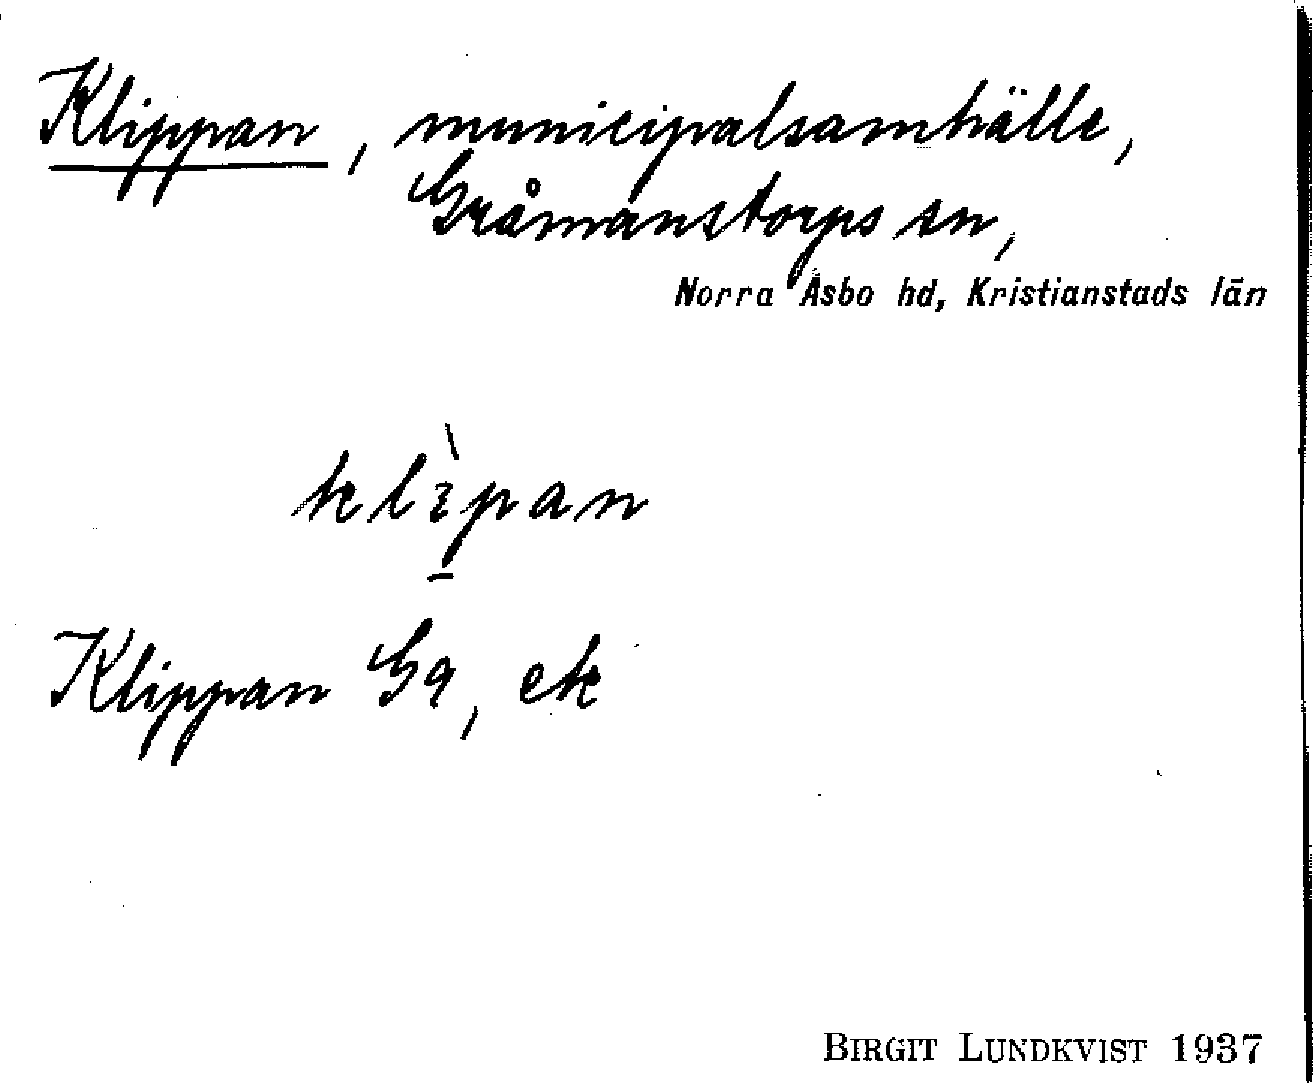 Klippan, municipalsamhälle,
Gråmanstorps sn,
Norra Åsbo hd, Kristianstads län
klɪ̀pan
Klippan Ga, ek
BIRGIT LUNDKVIST 1937